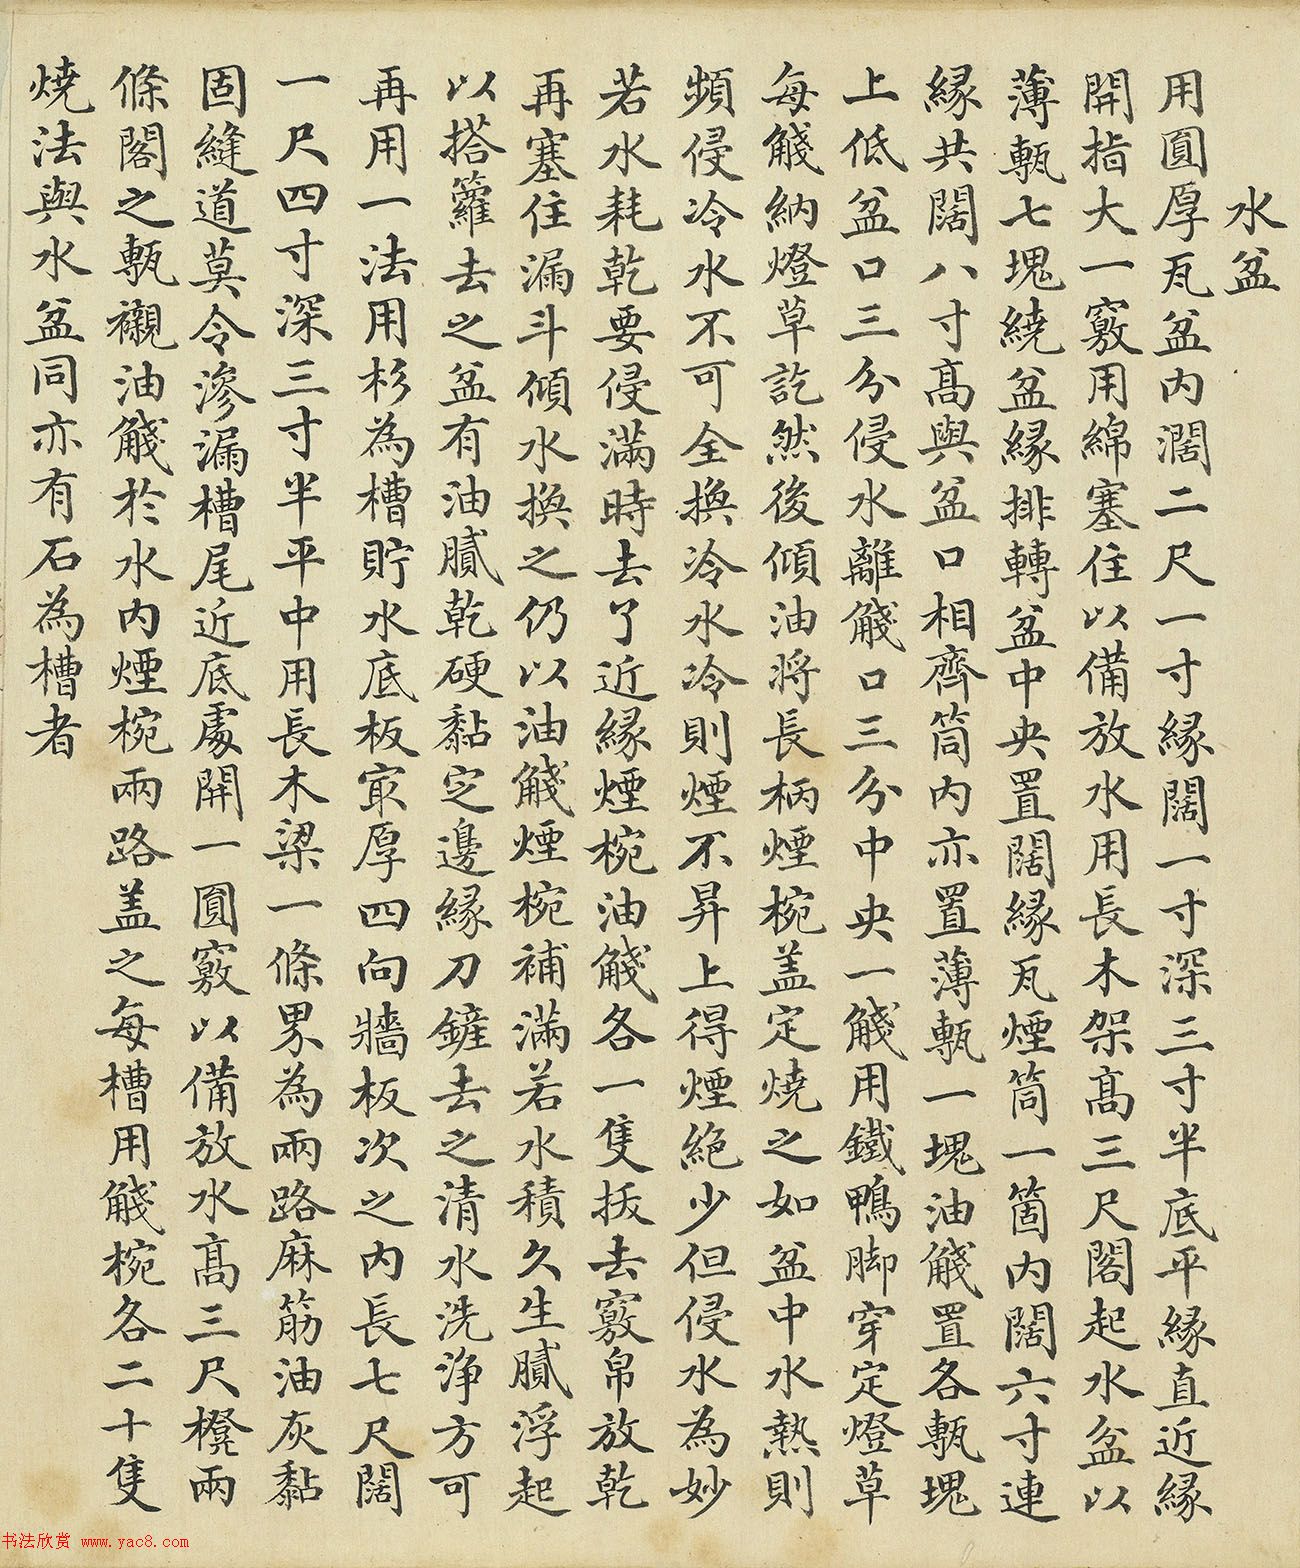 水盆
用圓厚瓦盆内濶二尺一寸縁闊一寸深三寸半底平縁直近縁
開指大一竅用綿塞住以備放水用長木架髙三尺閣起水盆以
薄甎七塊繞盆縁排轉盆中央置闊縁瓦煙筒一箇内闊六寸連
縁共闊八寸髙與盆口相齊筒内亦置薄甎一塊油觮置各甎塊
上低盆口三分侵水離觮口三分中央一觮用鐵鴨脚穿定燈草
每觮納燈草訖然後傾油將長柄煙椀盖定燒之如盆中水熱則
頻侵冷水不可全換冷水冷則煙不昇上得煙絶少但侵水為妙
若水耗乾要侵滿時去了近縁煙椀油觮各一隻扳去竅帛放乾
再塞住漏斗傾水換之仍以油觮煙椀補滿若水積久生膩浮起
以搭籮去之盆有油膩乾硬黏定邊縁刀鏟去之清水洗浄方可
再用一法用杉為槽貯水底板冣厚四向牆板次之内長七尺闊
一尺四寸深三寸半平中用長木梁一條界為兩路麻筋油灰黏
固縫道莫令滲漏槽尾近底處開一圓竅以備放水髙三尺櫈兩
條閣之甎襯油觮於水内煙椀兩路盖之每槽用觮椀各二十隻
燒法與水盆同亦有石為槽者
书法欣赏 www.yac8.com